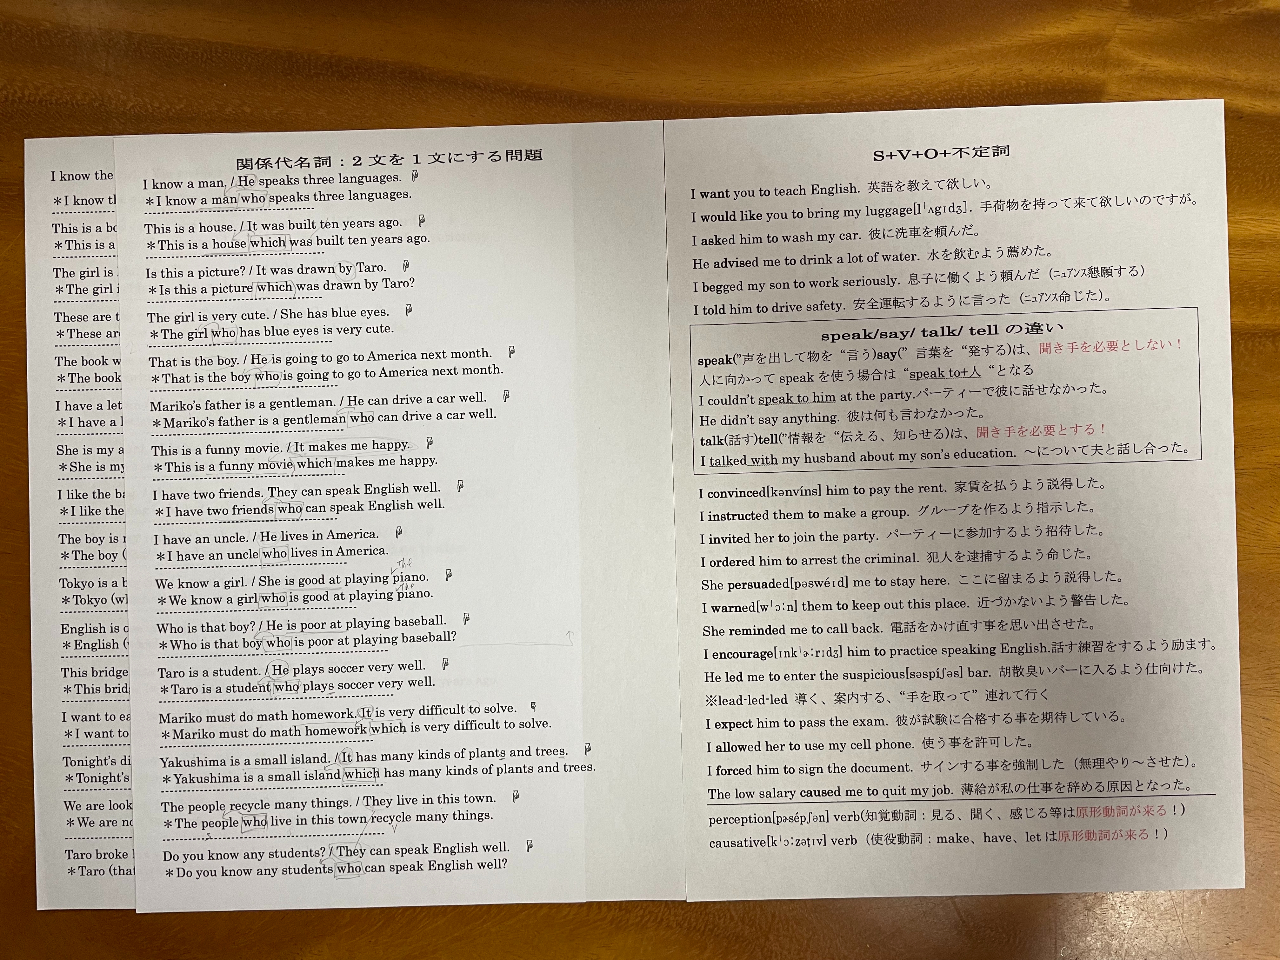 I know the
＊I know tl
This is a bo
＊This is a
The girl is
＊The girl i
These are t
＊These are
The book w
＊The book
I have a let
＊I have a l
She is my a
＊She is my
I like the ba
＊I like the
The boy is r
＊The boy (
Tokyo is a b
＊Tokyo (wl
English is o
＊English (
This bridge
＊This brid
I want to ea
＊I want to
Tonight's di
＊Tonight's
We are look
＊We are no
Taro broke
＊Taro (tha
関係代名詞：２文を１文にする問題
I know a man. / He speaks three languages.
＊I know a man who speaks three languages.
This is a house. / It was built ten years ago.
＊This is a house which was built ten years ago.
Is this a picture? / It was drawn by Taro.
＊Is this a picture which was drawn by Taro?
The girl is very cute. / She has blue eyes.
＊The girl who has blue eyes is very cute.
That is the boy. / He is going to go to America next month.
＊That is the boy who is going to go to America next month.
Mariko's father is a gentleman. / He can drive a car well.
＊Mariko's father is a gentleman who can drive a car well.
This is a funny movie. / It makes me happy.
＊This is a funny movie which makes me happy.
I have two friends. They can speak English well.
＊I have two friends who can speak English well.
I have an uncle. / He lives in America.
＊I have an uncle who lives in America.
the
We know a girl. / She is good at playing piano.
the
＊We know a girl who is good at playing piano.
Who is that boy? / He is poor at playing baseball.
＊Who is that boy who is poor at playing baseball?
Taro is a student. / He plays soccer very well.
＊Taro is a student who plays soccer very well.
Mariko must do math homework. It is very difficult to solve.
＊Mariko must do math homework which is very difficult to solve.
Yakushima is a small island. / It has many kinds of plants and trees.
＊Yakushima is a small island which has many kinds of plants and trees.
The people recycle many things. / They live in this town.
＊The people who live in this town recycle many things.
Do you know any students? / They can speak English well.
＊Do you know any students who can speak English well?
S+V+O+不定詞
I want you to teach English. 英語を教えて欲しい。
I would like you to bring my luggage[lˈʌgɪdʒ]. 手荷物を持って来て欲しいのですが。
I asked him to wash my car. 彼に洗車を頼んだ。
He advised me to drink a lot of water. 水を飲むよう薦めた。
I begged my son to work seriously. 息子に働くよう頼んだ（ﾆｭｱﾝｽ懇願する）
I told him to drive safety. 安全運転するように言った（ﾆｭｱﾝｽ命じた）。
speak/say/ talk/ tell の違い
speak(”声を出して物を “言う)say(” 言葉を “発する)は、聞き手を必要としない！
人に向かって speak を使う場合は “speak to+人 “となる
I couldn't speak to him at the party.パーティーで彼に話せなかった。
He didn't say anything. 彼は何も言わなかった。
talk(話す)tell(”情報を “伝える、知らせる)は、聞き手を必要とする！
I talked with my husband about my son's education. ～について夫と話し合った。
I convinced[kənvíns] him to pay the rent. 家賃を払うよう説得した。
I instructed them to make a group. グループを作るよう指示した。
I invited her to join the party. パーティーに参加するよう招待した。
I ordered him to arrest the criminal. 犯人を逮捕するよう命じた。
She persuaded[pəswéɪd] me to stay here. ここに留まるよう説得した。
I warned[wˈɔːn] them to keep out this place. 近づかないよう警告した。
She reminded me to call back. 電話をかけ直す事を思い出させた。
I encourage[ɪnkˈəːrɪdʒ] him to practice speaking English.話す練習をするよう励ます。
He led me to enter the suspicious[səspíʃəs] bar. 胡散臭いバーに入るよう仕向けた。
※lead-led-led 導く、案内する、“手を取って” 連れて行く
I expect him to pass the exam. 彼が試験に合格する事を期待している。
I allowed her to use my cell phone. 使う事を許可した。
I forced him to sign the document. サインする事を強制した（無理やり～させた）。
The low salary caused me to quit my job. 薄給が私の仕事を辞める原因となった。
perception[pəsépʃən] verb(知覚動詞：見る、聞く、感じる等は原形動詞が来る！)
causative[kˈɔːzəṭɪv] verb（使役動詞：make、have、let は原形動詞が来る！)